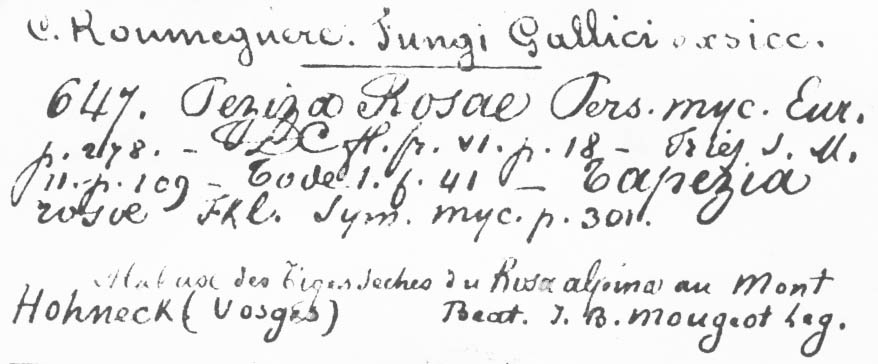 C. Roumeguere. Fungi Gallici exsicc.
647. Peziza Rosae Pers. myc. Eur.
p. 278. - DC fl. fr. VI. p. 18 - Fries S. M.
II. p. 109 - Tode 1. f. 41 - Tapezia
rosae Fkl. Sym. myc. p. 301.
des Tiges seches du Rosa alpina au Mont
Hohneck (Vosges) Beat. J. B. Mougeot Leg.